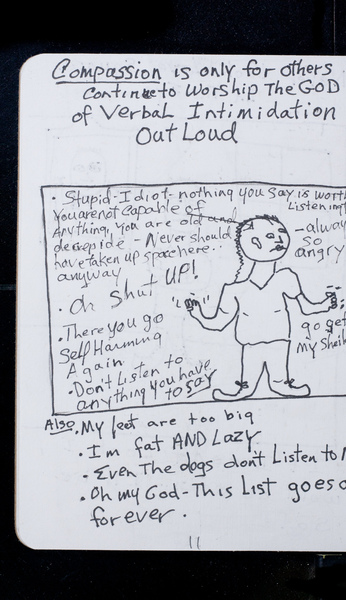 Compassion is only for others
Continue to Worship The GOD
of Verbal Intimidation
Out Loud
• Stupid-Idiot-nothing you say is worth
Listening
You are not capable of
Anything, you are old and
decrepide - Never should
have taken up space here..
anyway
-alway
so
angry
• Oh Shut UP!
• There you go
Self Harming
Again
• Don't Listen to
anything you have
to say
go get
my
Also • My feet are too big
• I'm fat AND Lazy
• Even The dogs don't Listen to
• Oh my God - This List goes o
forever.
11